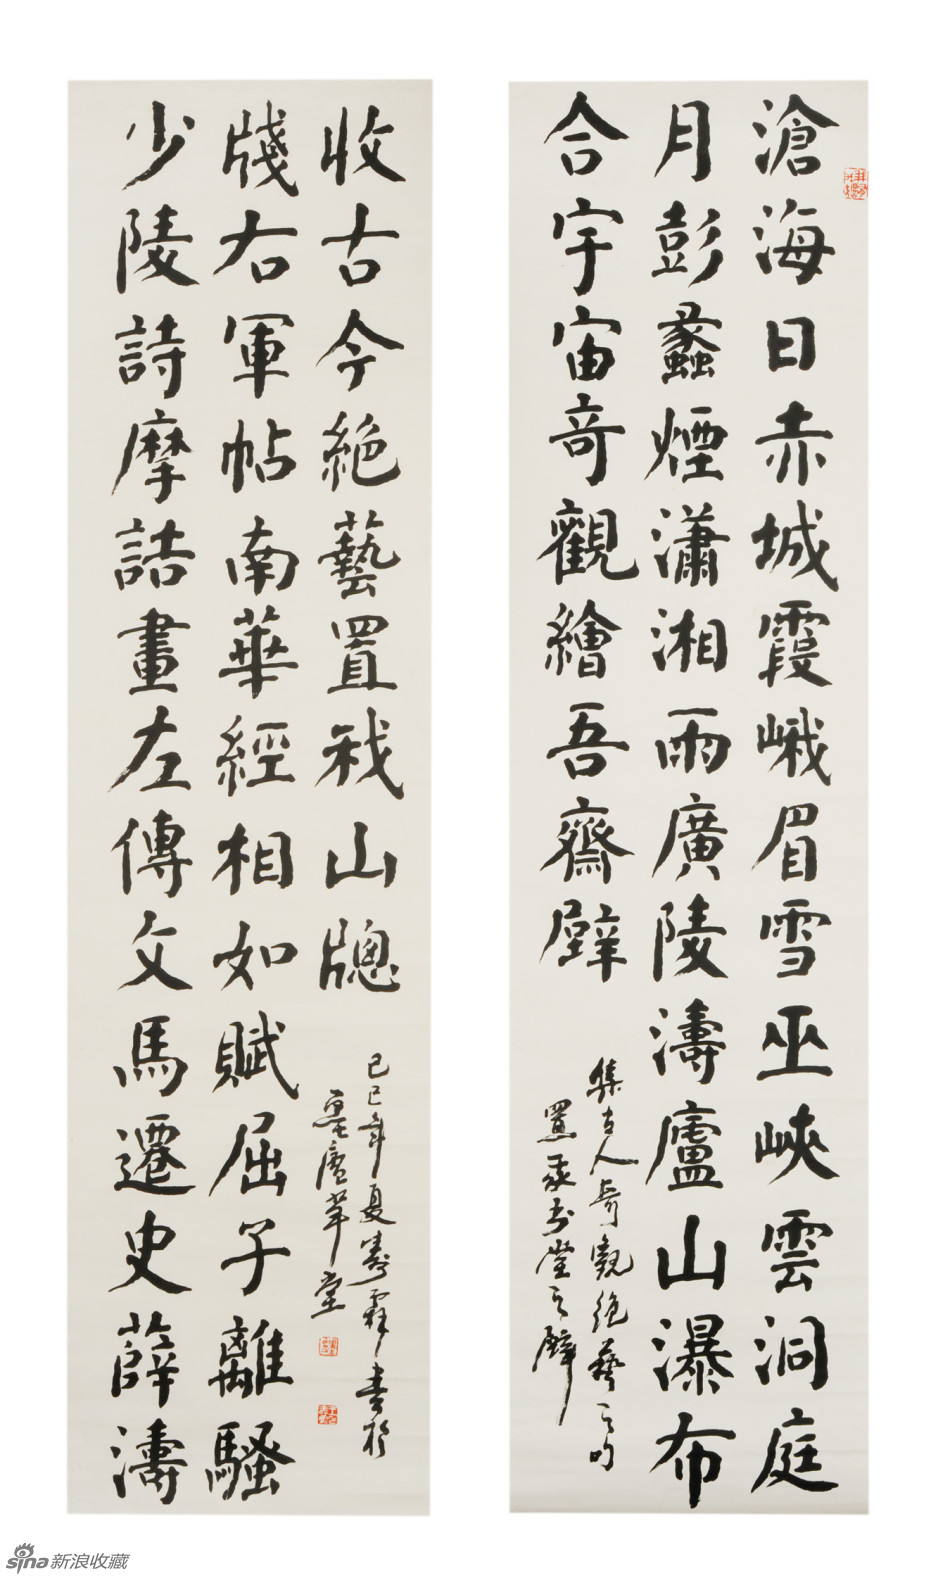 滄海日赤城霞峨眉雪巫峽雲洞庭
月彭蠡煙瀟湘雨廣陵濤廬山瀑布
合宇宙奇觀繪吾齋壁
集古人奇觀絕藝之句
置書堂之壁
少陵詩摩詰畫左傳文馬遷史薛濤
牋右軍帖南華經相如賦屈子離騷
收古今絕藝置我山牕
己巳年夏壽霖書於
草堂
sina新浪收藏